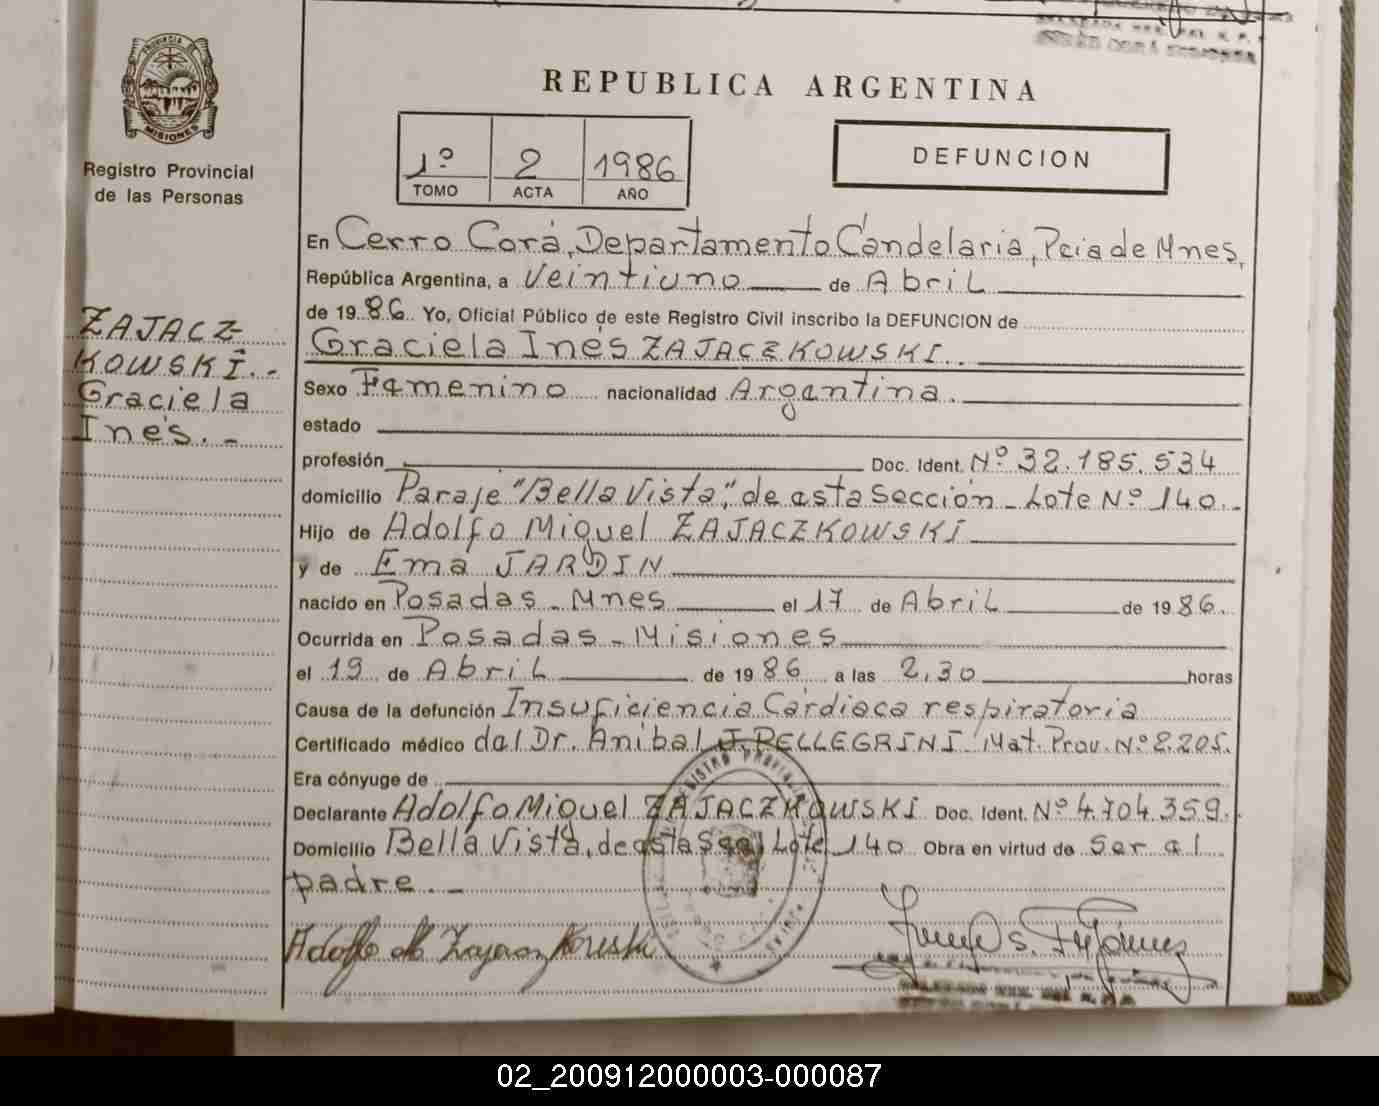 REPUBLICA ARGENTINA
PROVINCIA DE
MISIONES
Registro Provincial
de las Personas
1º 2 1986
TOMO ACTA AÑO
DEFUNCION
ZAJACZ-
KOWSKI.-
Graciela
Inés.-
En Cerro Corá, Departamento Candelaria, Pcia de Mnes,
República Argentina, a Veintiuno de Abril
de 1986. Yo, Oficial Público de este Registro Civil inscribo la DEFUNCION de
Graciela Inés ZAJACZKOWSKI.
Sexo Femenino nacionalidad Argentina.
estado
profesión Doc. Ident. Nº 32.185.534
domicilio Paraje "Bella Vista", de esta Sección - Lote Nº 140.-
Hijo de Adolfo Miguel ZAJACZKOWSKI
y de Ema JARDIN
nacido en Posadas - Mnes el 17 de Abril de 1986.
Ocurrida en Posadas - Misiones
el 19 de Abril de 1986 a las 2,30 horas
Causa de la defunción Insuficiencia Cardiaca respiratoria
Certificado médico del Dr. Anibal J. PELLEGRINI Mat. Prov. Nº 2.205.
Era cónyuge de
Declarante Adolfo Miguel ZAJACZKOWSKI Doc. Ident. Nº 4.704.359.
Domicilio Bella Vista, de esta Sec. Lote 140 Obra en virtud de Ser el
padre.-
Adolfo M. Zajaczkowski
02_200912000003-000087